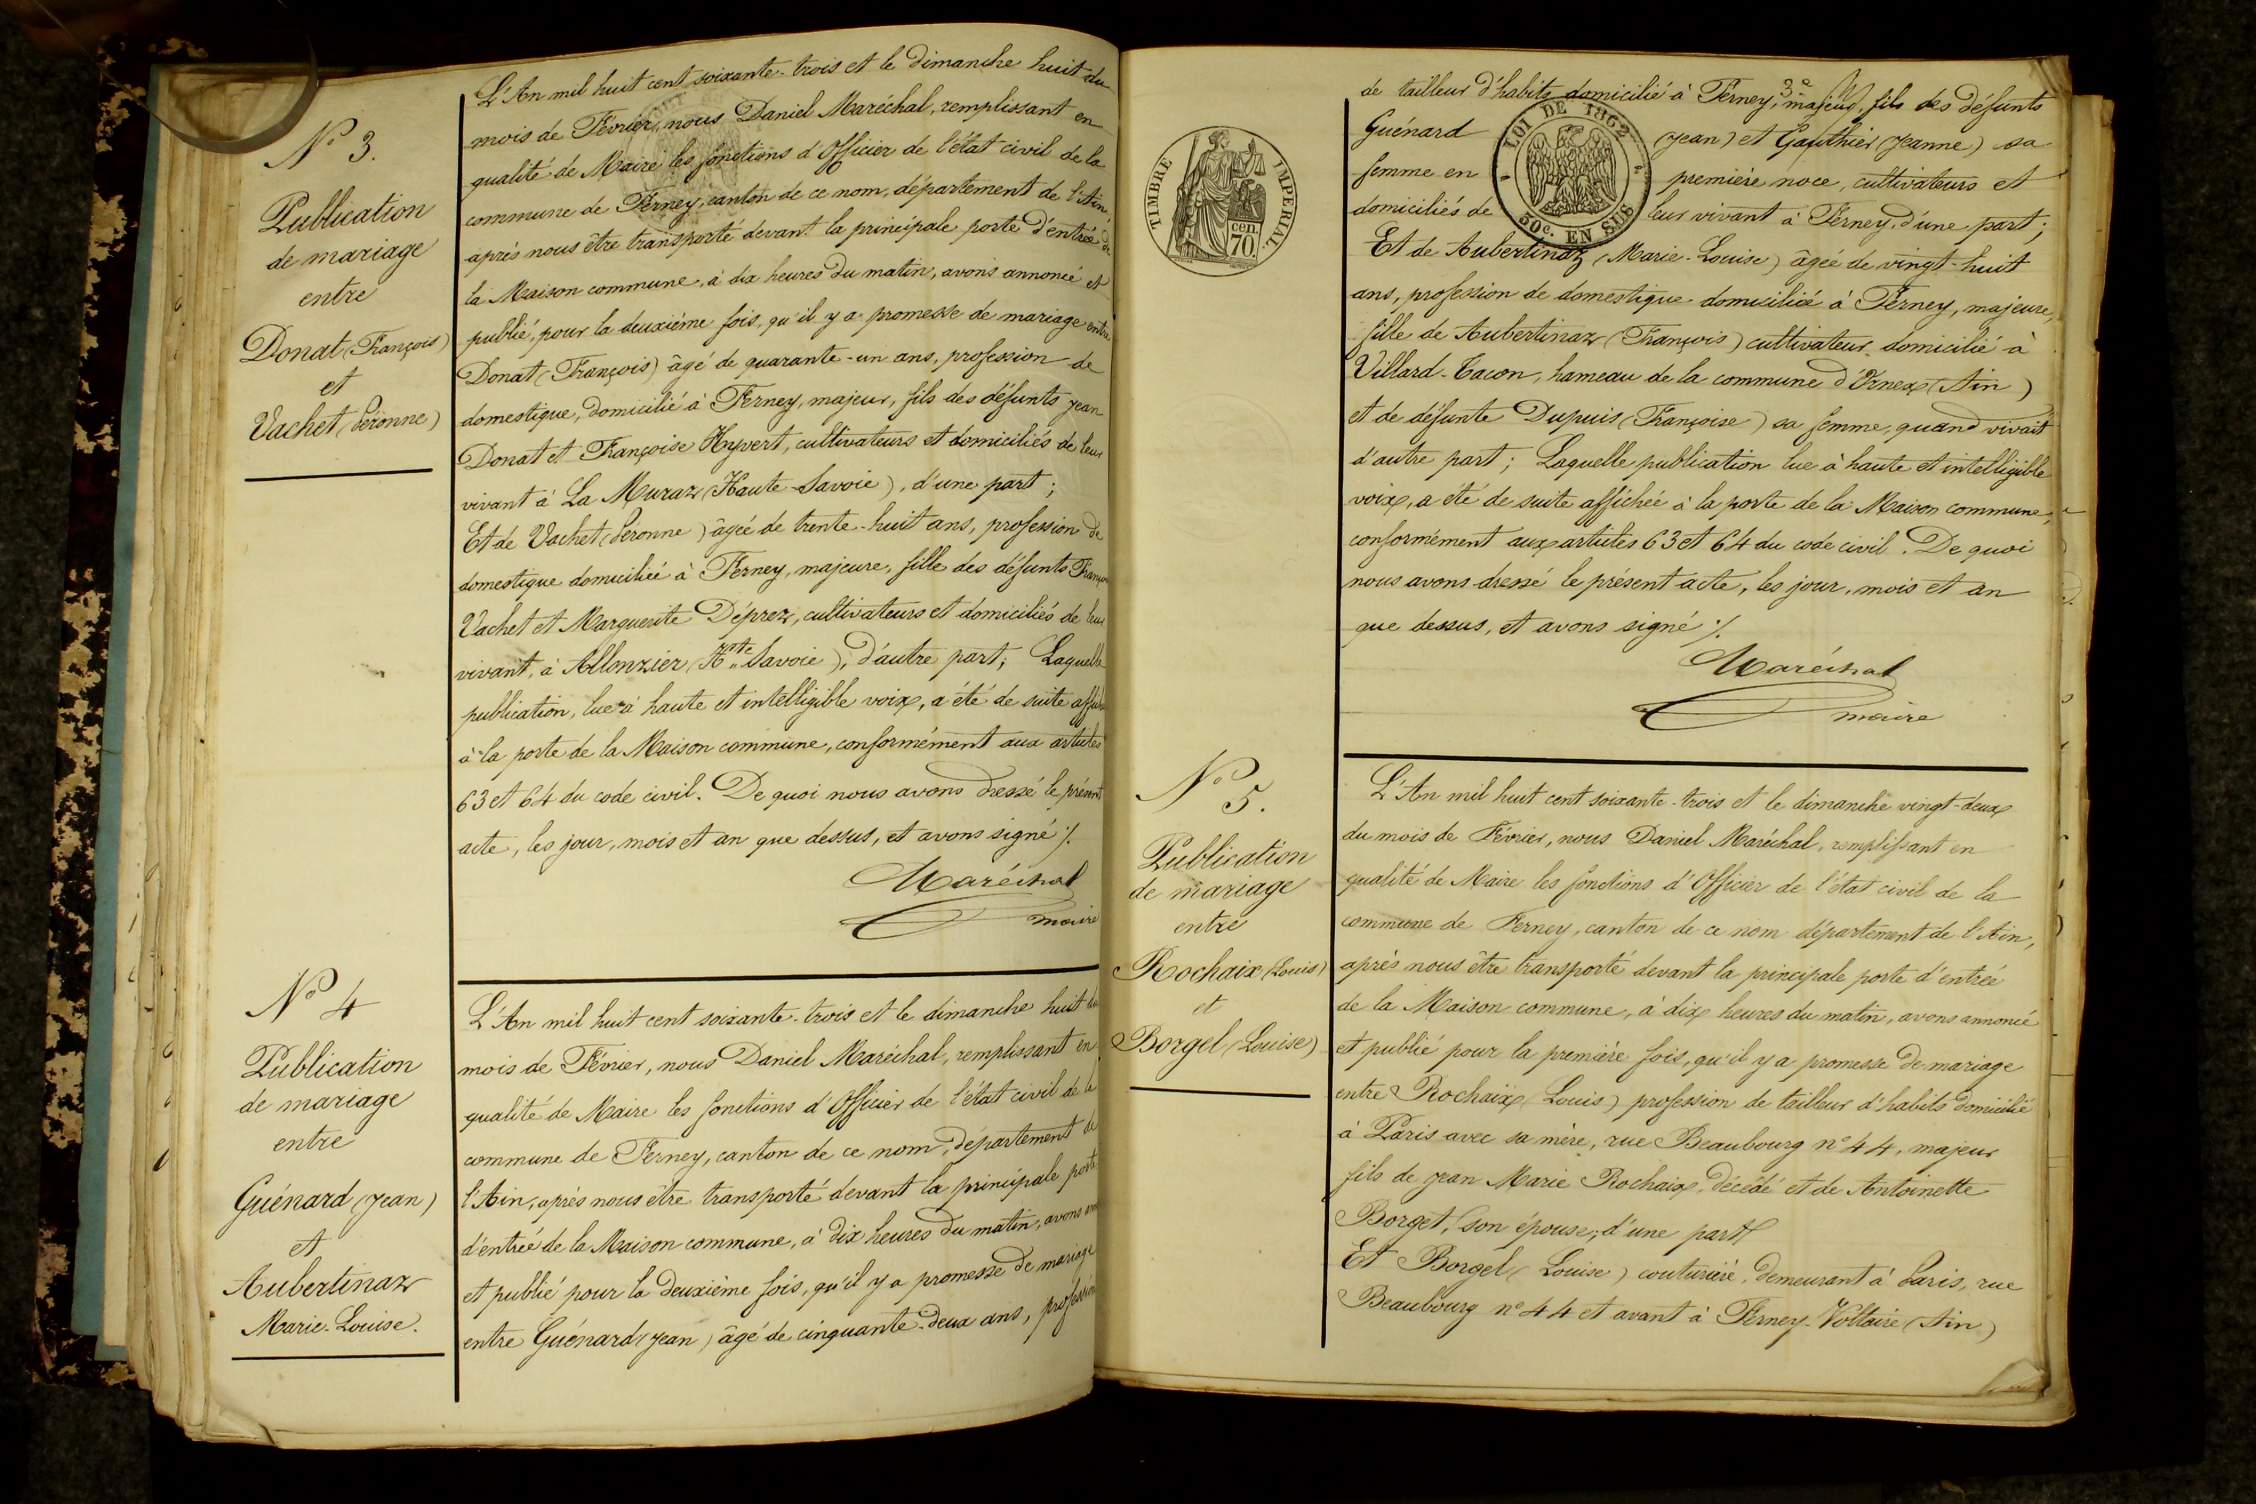 N° 3.
Publication
de mariage
entre
Donat (François)
et
Vachet (Péronne)
L'An mil huit cent soixante-trois et le dimanche huit du
mois de Février, nous Daniel Maréchal, remplissant en
qualité de Maire les fonctions d'Officier de l'état civil de la
commune de Ferney, canton de ce nom, département de l'Ain,
après nous être transporté devant la principale porte d'entrée de
la Maison commune, à dix heures du matin, avons annoncé et
publié, pour la deuxième fois, qu'il y a promesse de mariage entre
Donat (François) âgé de quarante-un ans, profession de
domestique, domicilié à Ferney, majeur, fils des défunts Jean
Donat et Françoise Hyvert, cultivateurs et domiciliés de leur
vivant à La Muraz (Haute-Savoie), d'une part;
Et de Vachet (Péronne) âgée de trente-huit ans, profession de
domestique domiciliée à Ferney, majeure, fille des défunts François
Vachet et Marguerite Déprez, cultivateurs et domiciliés de leur
vivant, à Allonzier (Hte Savoie), d'autre part; Laquelle
publication, lue à haute et intelligible voix, a été de suite affichée
à la porte de la Maison commune, conformément aux articles
63 et 64 du code civil. De quoi nous avons dressé le présent
acte, les jour, mois et an que dessus, et avons signé ./.
Maréchal
maire
N° 4
Publication
de mariage
entre
Guénard (Jean)
et
Aubertinaz
Marie-Louise.
L'An mil huit cent soixante-trois et le dimanche huit du
mois de Février, nous Daniel Maréchal, remplissant en
qualité de Maire les fonctions d'Officier de l'état civil de la
commune de Ferney, canton de ce nom, département de
l'Ain, après nous être transporté devant la principale porte
d'entrée de la Maison commune, à dix heures du matin, avons
et publié pour la deuxième fois, qu'il y a promesse de mariage
entre Guénard (Jean) âgé de cinquante-deux ans, profession
TIMBRE IMPERIAL
cen.
70.
LOI DE 1862
50c. EN SUS
de tailleur d'habits domicilié à Ferney, majeur, fils des défunts
Guénard (Jean) et Gauthier (Jeanne) sa
femme en première noce, cultivateurs et
domiciliés de leur vivant à Ferney, d'une part;
Et de Aubertinaz (Marie-Louise) âgée de vingt-huit
ans, profession de domestique domiciliée à Ferney, majeure,
fille de Aubertinaz (François) cultivateur domicilié à
Villard-Tacon, hameau de la commune d'Ornex (Ain)
et de défunte Dupuis (Françoise) sa femme, quand vivait
d'autre part; Laquelle publication lue à haute et intelligible
voix, a été de suite affichée à la porte de la Maison commune,
conformément aux articles 63 et 64 du code civil. De quoi
nous avons dressé le présent acte, les jour, mois et an
que dessus, et avons signé ./.
Maréchal
maire
N° 5.
Publication
de mariage
entre
Rochaix (Louis)
et
Borgel (Louise)
L'An mil huit cent soixante-trois et le dimanche vingt-deux
du mois de Février, nous Daniel Maréchal, remplissant en
qualité de Maire les fonctions d'Officier de l'état civil de la
commune de Ferney, canton de ce nom département de l'Ain,
après nous être transporté devant la principale porte d'entrée
de la Maison commune, à dix heures du matin, avons annoncé
et publié pour la première fois, qu'il y a promesse de mariage
entre Rochaix (Louis) profession de tailleur d'habits domicilié
à Paris avec sa mère, rue Beaubourg n° 44, majeur
fils de Jean Marie Rochaix, décédé et de Antoinette
Borget, son épouse; d'une part
Et Borgel (Louise) couturière, demeurant à Paris, rue
Beaubourg n° 44 et avant à Ferney-Voltaire (Ain)